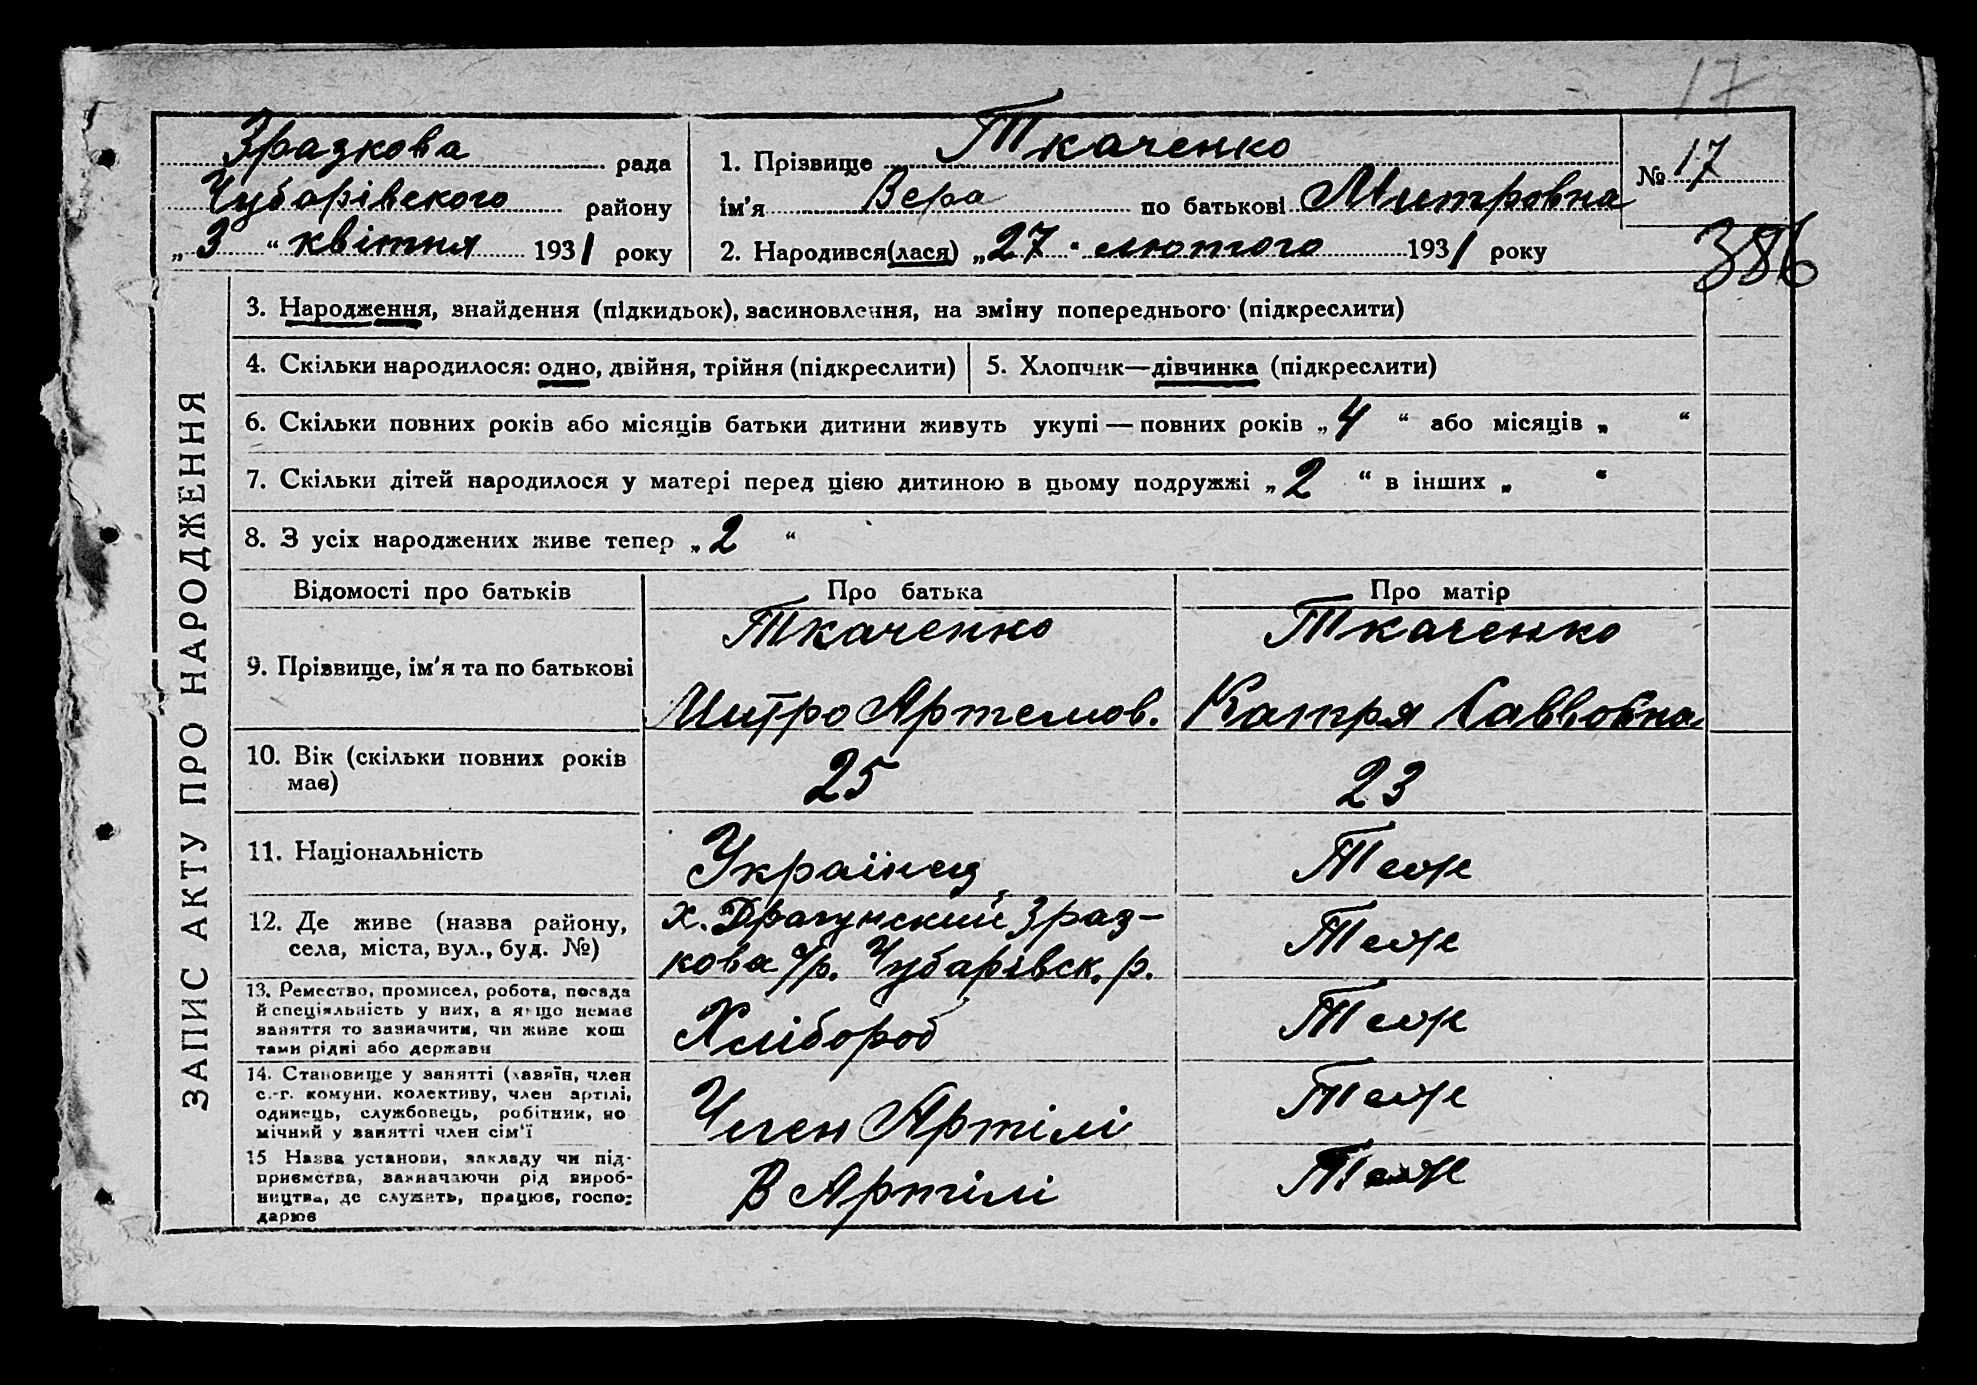 17
Зразкова рада
Чубарівского району
„3“ квітня 1931 року
1. Прізвище Ткаченко
ім'я Вера по батькові Митровна
2. Народився(лася) „27“ лютого 1931 року
№ 17
386
ЗАПИС АКТУ ПРО НАРОДЖЕННЯ
3. Народження, знайдення (підкидьок), засиновлення, на зміну попереднього (підкреслити)
4. Скільки народилося: одно, двійня, трійня (підкреслити)
5. Хлопчик—дівчинка (підкреслити)
6. Скільки повних років або місяців батьки дитини живуть укупі — повних років „4“ або місяців „ “
7. Скільки дітей народилося у матері перед цією дитиною в цьому подружжі „2“ в інших „ “
8. З усіх народжених живе тепер „2“
Відомості про батьків
Про батька
Про матір
9. Прізвище, ім'я та по батькові
Ткаченко
Митро Артемов.
Ткаченко
Катря Саввовна
10. Вік (скільки повних років
має)
25
23
11. Національність
Українец
Теж
12. Де живе (назва району,
села, міста, вул., буд. №)
х. Драгунский Зраз-
кова с/р. Чубарівск. р.
Теж
13. Ремество, промисел, робота, посада
й спеціяльність у них, а якщо немає
заняття то зазначити, чи живе кош
тами рідні або держави
Хлібороб
Теж
14. Становище у занятті (хазяїн, член
с.-г. комуни, колективу, член артілі,
одинець, службовець, робітник, по
мічний у занятті член сім'ї
Член Артілі
Теж
15 Назва установи, закладу чи під-
приємства, зазначаючи рід вироб-
ництва, де служить, працює, госпо-
дарює
В Артілі
Теж